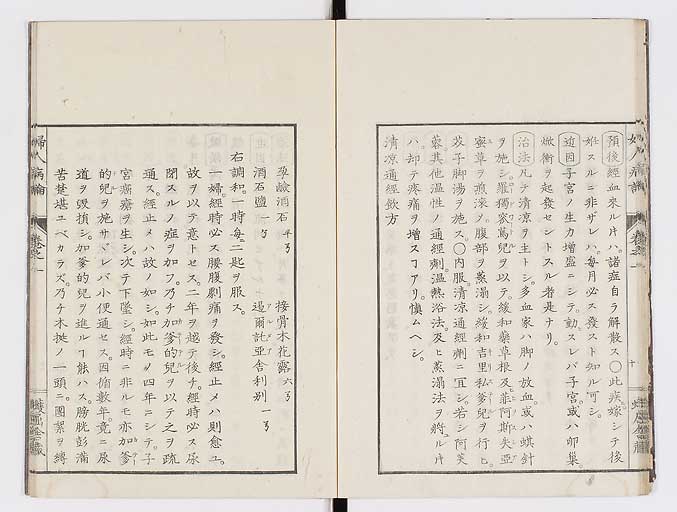 預後經血來ル片ハ。諸症自ラ解散ス〇此疾嫁シテ後
姙スルニ非ザレハ。毎月必ス發スト知ル可シ。
迫因子宮ノ生力増盛ニシテ。動スレバ子宮或ハ卵巢
焮衝ヲ起發セントスル者是ナリ。
治法凡テ清凉ヲ主トシ。多血家ハ脚ノ故血。或ハ蜞針
ヲ施シ。羅獨窊篤兒ヲ以テ。緩和藥草根及菲阿斯矢亞
蜜草ヲ煎滾シ。腹部ヲ蒸溻シ。緩和吉里私爹兒ヲ行ヒ。
芥子脚湯ヲ施ス。〇内服。清凉通經劑ニ冝シ。若シ阿芙
蓉其他溫性ノ通經劑。溫熱浴法。及ヒ蒸溻法ヲ将ル片
ハ。却テ疼痛ヲ增スヿアリ。愼ムヘシ。
清凉通經飲方
孕鹼消石半ゟ
接骨木花露六ゟ
酒石鹽一ゟ
遏爾託亞舎利別一ゟ
右調和。一時毎。二匙ヲ服ス。
一婦。經時必ス腰腹劇痛ヲ發シ。經止メハ則愈ユ。
故ヲ以テ意トセス。二年ヲ越テ後チ。經時必ス尿
閉スルノ症ヲ加フ。乃チ加爹的兒ヲ以テ之ヲ疏
通ス。經止メハ故ノ如シ。如此モノ四年ニシテ。子
宮癌瘡ヲ生シ。次テ下墜シ。經時ニ非ルモ亦加爹
的兒ヲ施サヾレバ小便通セス。因脩數年。竟ニ尿
道ヲ毀損シ。加爹的兒ヲ進ルヿ能ハス。膀胱彭滿
苦楚堪ユベカラズ。乃チ木挺ノ一頭ニ。圍絮ヲ縛
婦人病論
卷之一